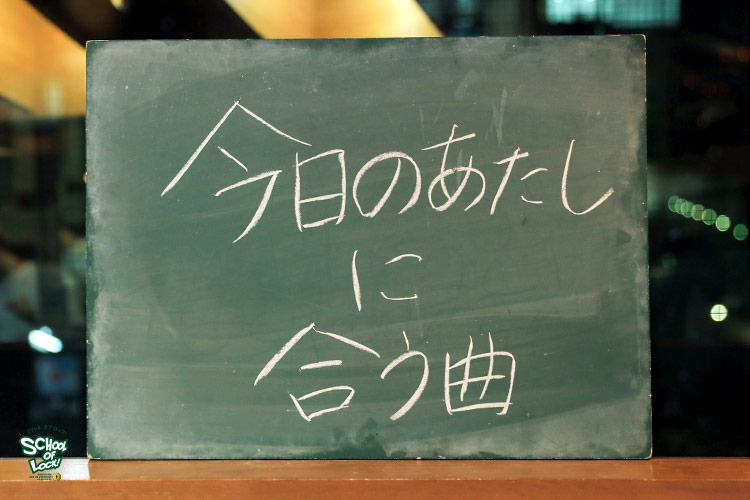 今日のあたし
に
合う曲
SCHOOL
OF
LOCK!